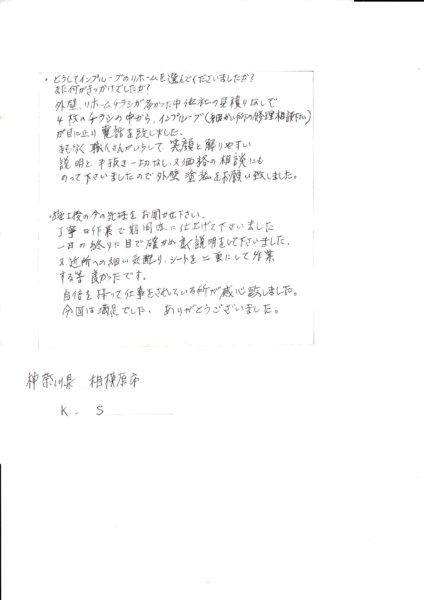 ・どうしてインプルーブのリホームを選んでくださいましたか?
また何がきっかけでしたか?
外壁、リホームチラシが多かった中他社の見積りなしで
4枚のチラシの中から、インプルーブ(細かい所の修理相談下さい)
が目に止り電話を致しました。
まもなく職人さんがいらして笑顔と解りやすい
説明と手抜き一切なし、又価格の相談にも
のって下さいましたので外壁塗装をお願い致しました。
・施工後の今の気持をお聞かせ下さい。
丁寧な作業で期間内に仕上げて下さいました
一日の終りに目で確かめ良く説明をして下さいました。
又近所への細い気配り、シートを二重にして作業
する等良かったです。
自信を持って仕事をされている所が感心致しました。
今回は満足でした。ありがとうございました。
神奈川県 相模原市
K. S